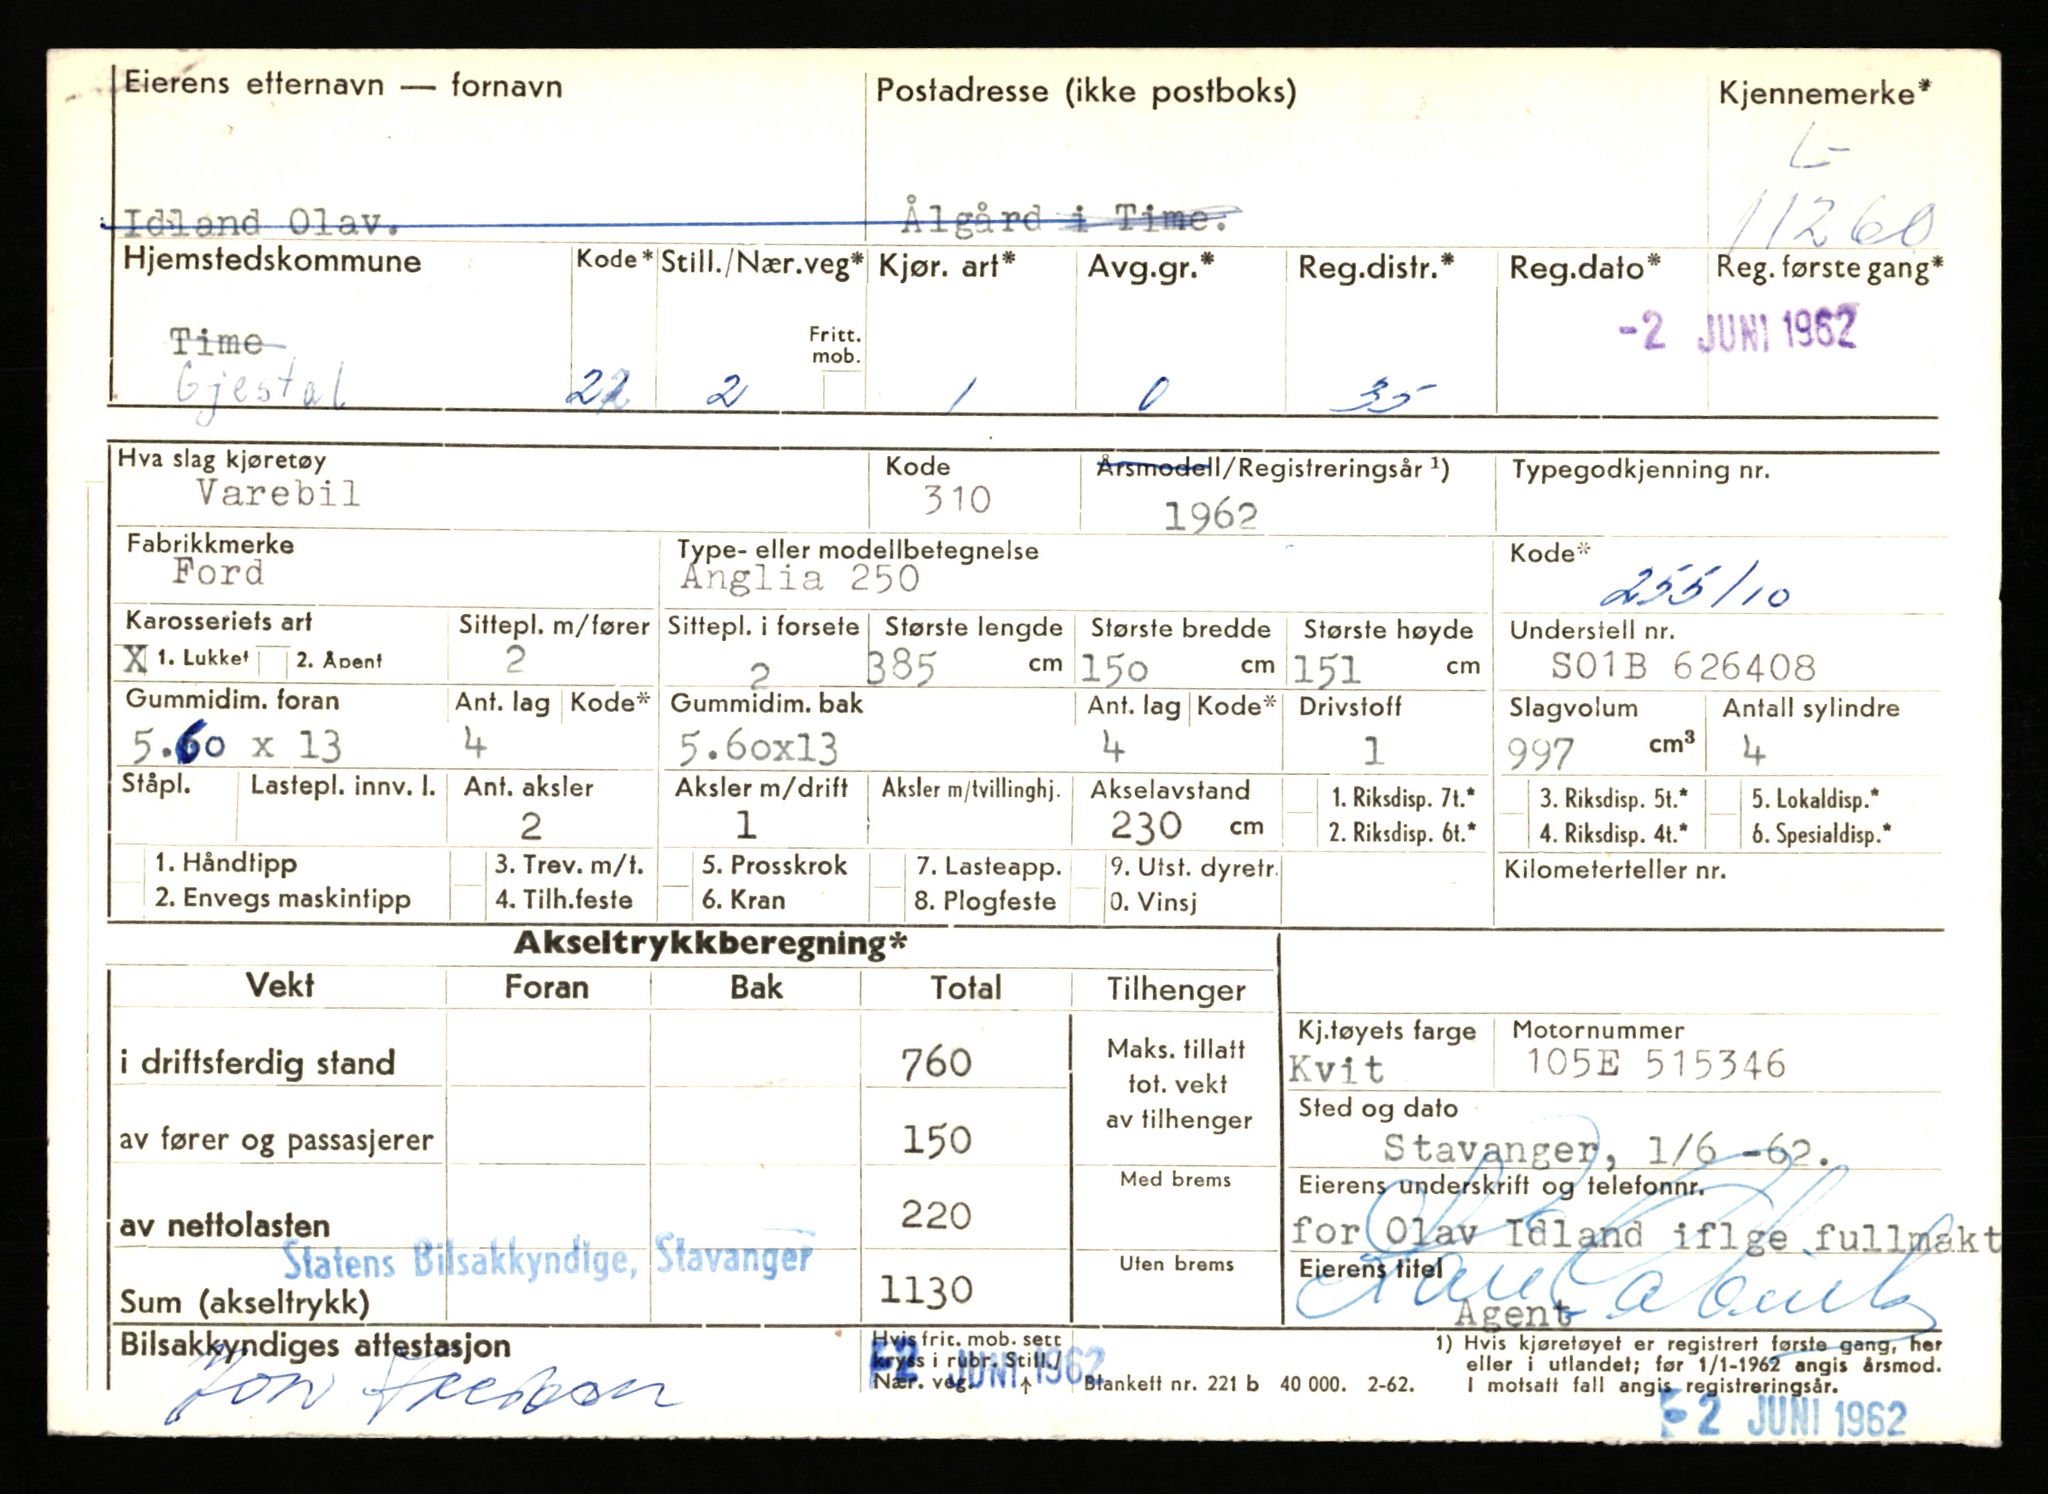 Eierens etternavn — fornavn Postadresse (ikke postboks) Kjennemerke*
L-
Idland Olav. Ålgård i Time. 11260
Hjemstedskommune Kode* Still./Nær.veg* Kjør. art* Avg.gr.* Reg.distr.* Reg.dato* Reg. første gang*
Time Fritt. mob. -2 JUNI 1962
Gjestal 22 2 1 0 35
Hva slag kjøretøy Kode Årsmodell/Registreringsår ¹) Typegodkjenning nr.
Varebil 310 1962
Fabrikkmerke Type- eller modellbetegnelse Kode*
Ford Anglia 250 255/10
Karosseriets art Sittepl. m/fører Sittepl. i forsete Største lengde Største bredde Største høyde Understell nr.
X 1. Lukket 2. Åpent 2 2 385 cm 150 cm 151 cm S01B 626408
Gummidim. foran Ant. lag Kode* Gummidim. bak Ant. lag Kode* Drivstoff Slagvolum Antall sylindre
5.60 x 13 4 5.60x13 4 1 997 cm³ 4
Ståpl. Lastepl. innv. l. Ant. aksler Aksler m/drift Aksler m/tvillinghj. Akselavstand 1. Riksdisp. 7t.* 3. Riksdisp. 5t.* 5. Lokaldisp.*
2 1 230 cm 2. Riksdisp. 6t.* 4. Riksdisp. 4t.* 6. Spesialdisp.*
1. Håndtipp 3. Trev. m/t. 5. Prosskrok 7. Lasteapp. 9. Utst. dyretr. Kilometerteller nr.
2. Envegs maskintipp 4. Tilh.feste 6. Kran 8. Plogfeste 0. Vinsj
Akseltrykkberegning*
Vekt Foran Bak Total Tilhenger
Kj.tøyets farge Motornummer
i driftsferdig stand 760 Maks. tillatt tot. vekt av tilhenger Kvit 105E 515346
Sted og dato
av fører og passasjerer 150 Stavanger, 1/6 -62.
Med brems Eierens underskrift og telefonnr.
av nettolasten 220 for Olav Idland iflge fullmakt
Statens Bilsakkyndige, Stavanger
Uten brems Eierens titel
Sum (akseltrykk) 1130 Agent
Bilsakkyndiges attestasjon Hvis frit. mob. sett kryss i rubr. Still./ Nær. veg. ↑ -2 JUNI 1962
Blankett nr. 221 b 40 000. 2-62.
1) Hvis kjøretøyet er registrert første gang, her
eller i utlandet; før 1/1-1962 angis årsmod.
I motsatt fall angis registreringsår.
-2 JUNI 1962